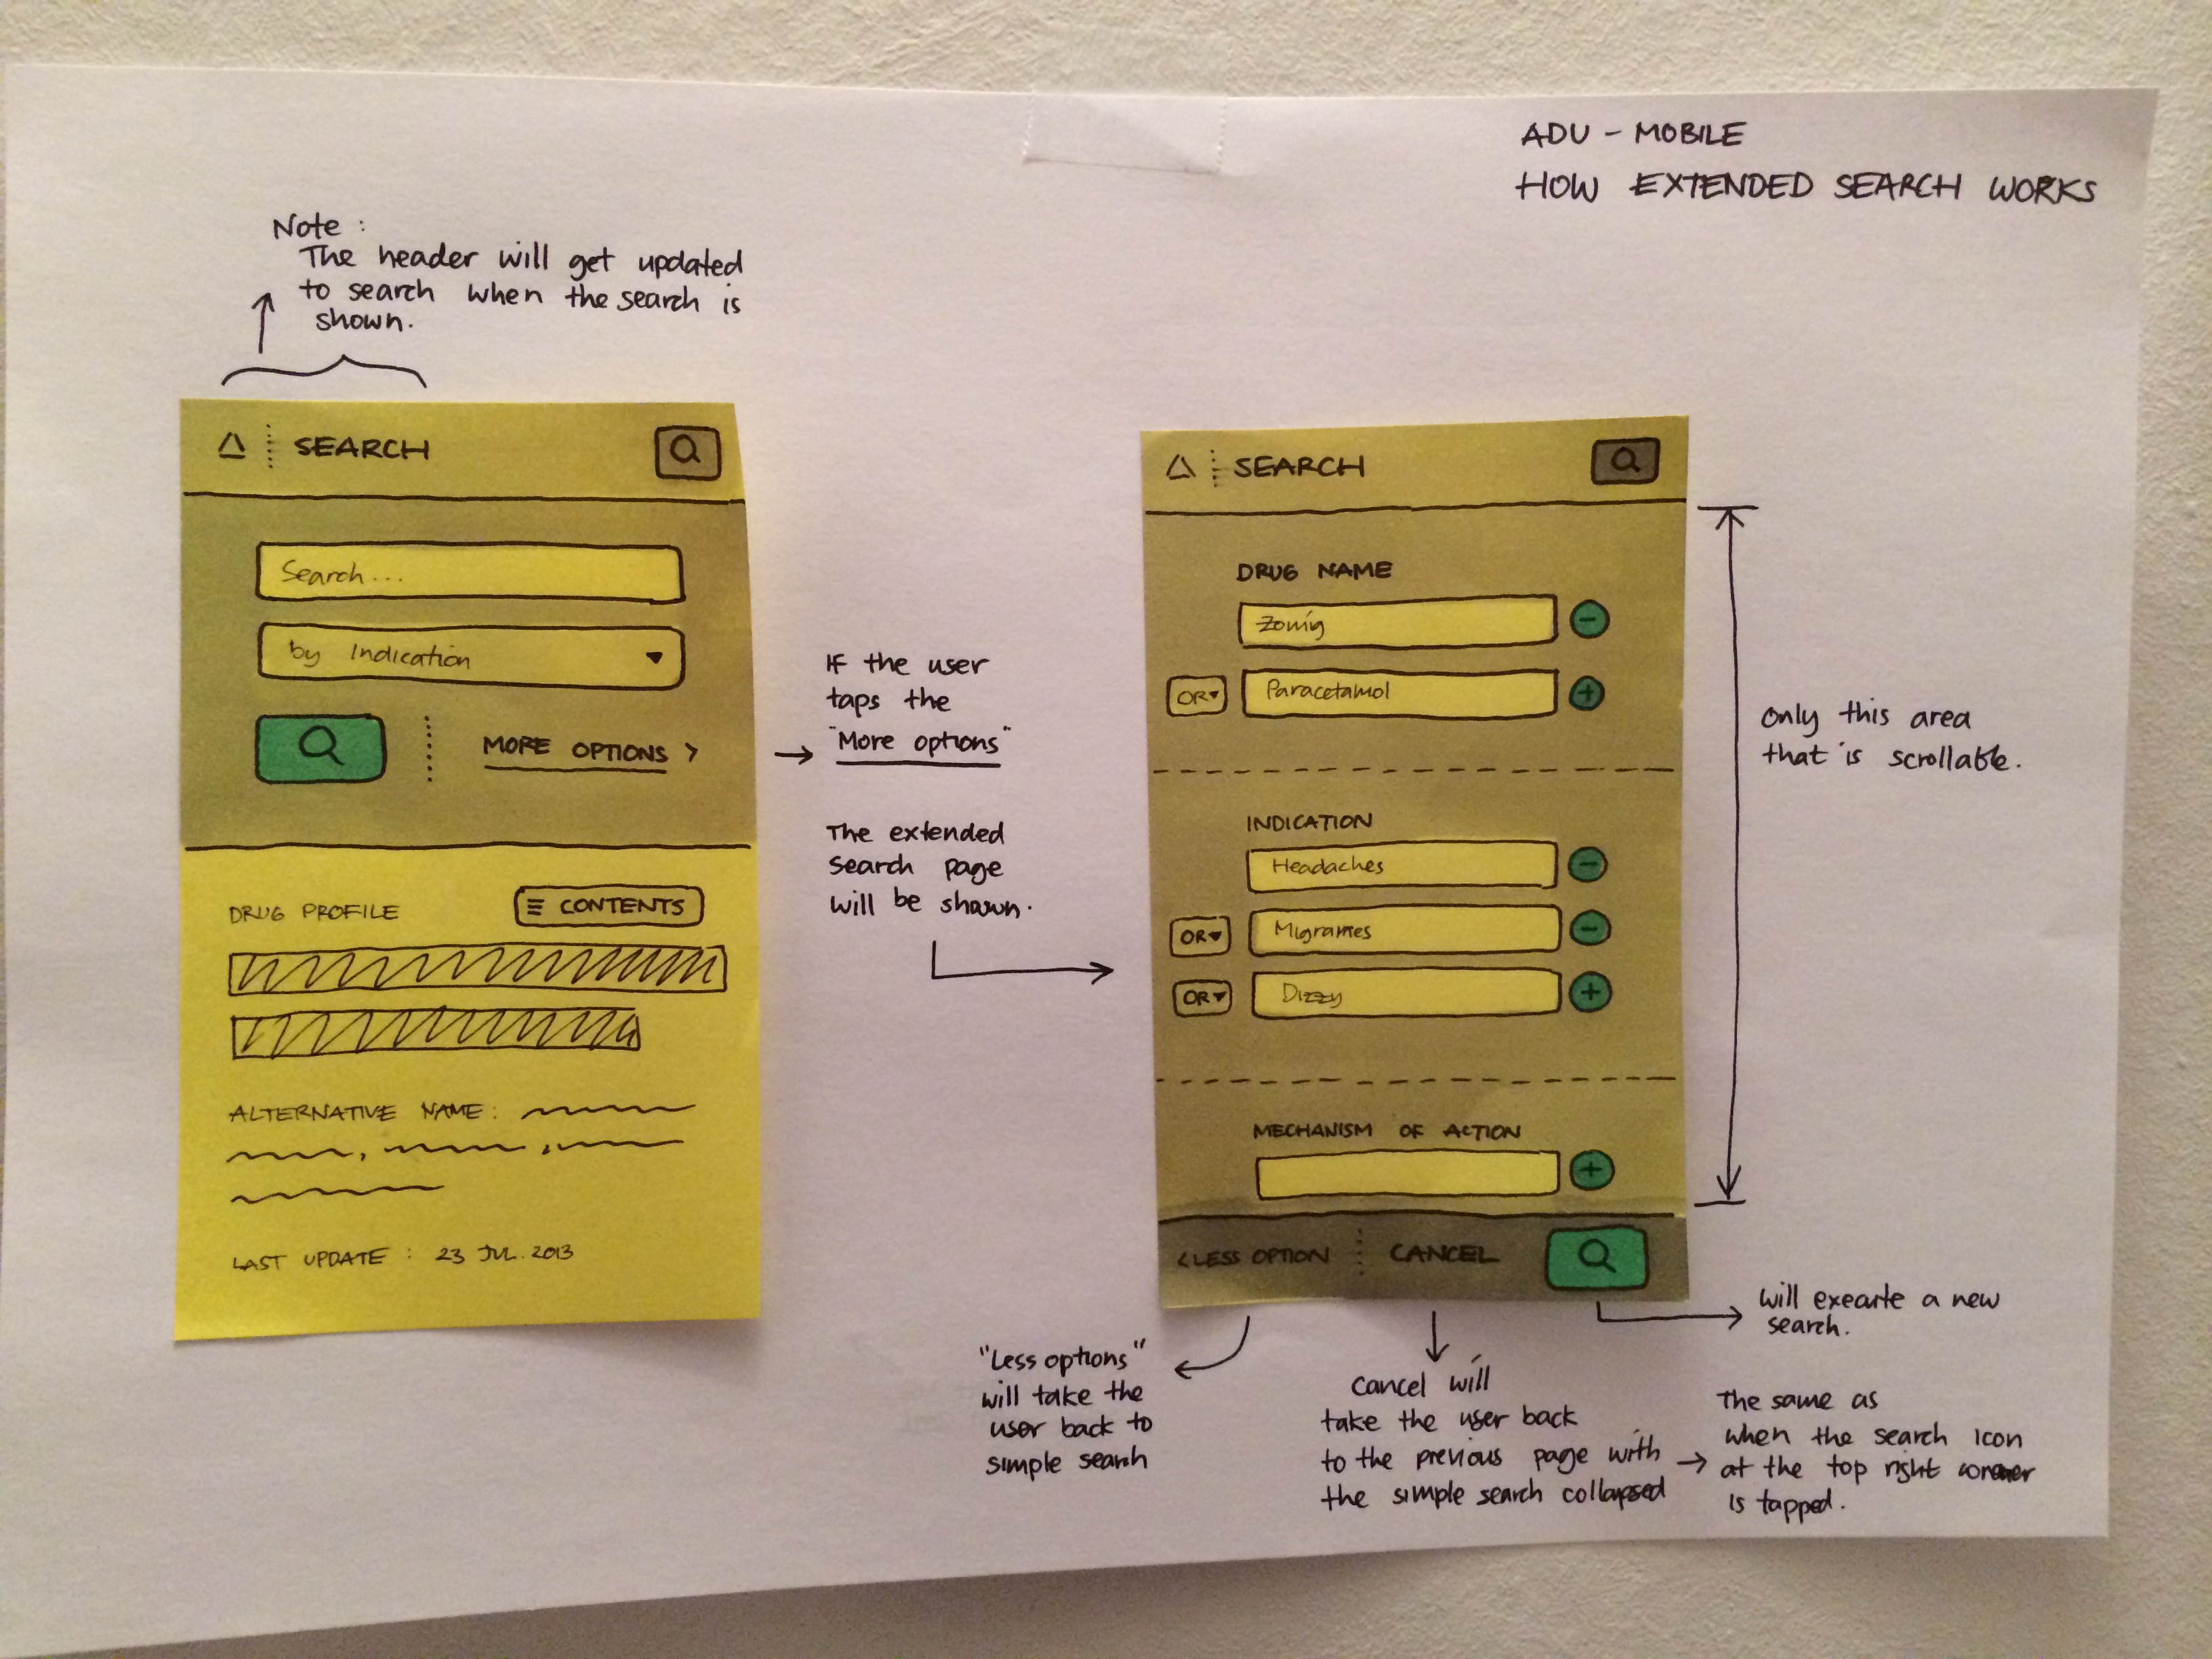 ADU - MOBILE
HOW EXTENDED SEARCH WORKS
Note :
The header will get updated
to search when the search is
shown.
SEARCH
Search...
by Indication
MORE OPTIONS >
DRUG PROFILE
CONTENTS
ALTERNATIVE NAME :
LAST UPDATE : 23 JUL. 2013
IF the user
taps the
"More options"
The extended
search page
will be shown.
SEARCH
DRUG NAME
Zomig
OR Paracetamol
INDICATION
Headaches
OR Migraines
OR Dizzy
MECHANISM OF ACTION
< LESS OPTION
CANCEL
only this area
that is scrollable.
will execute a new
search.
"Less options"
will take the
user back to
simple search
Cancel will
take the user back
to the previous page with
the simple search collapsed
The same as
when the search icon
at the top right corner
is tapped.